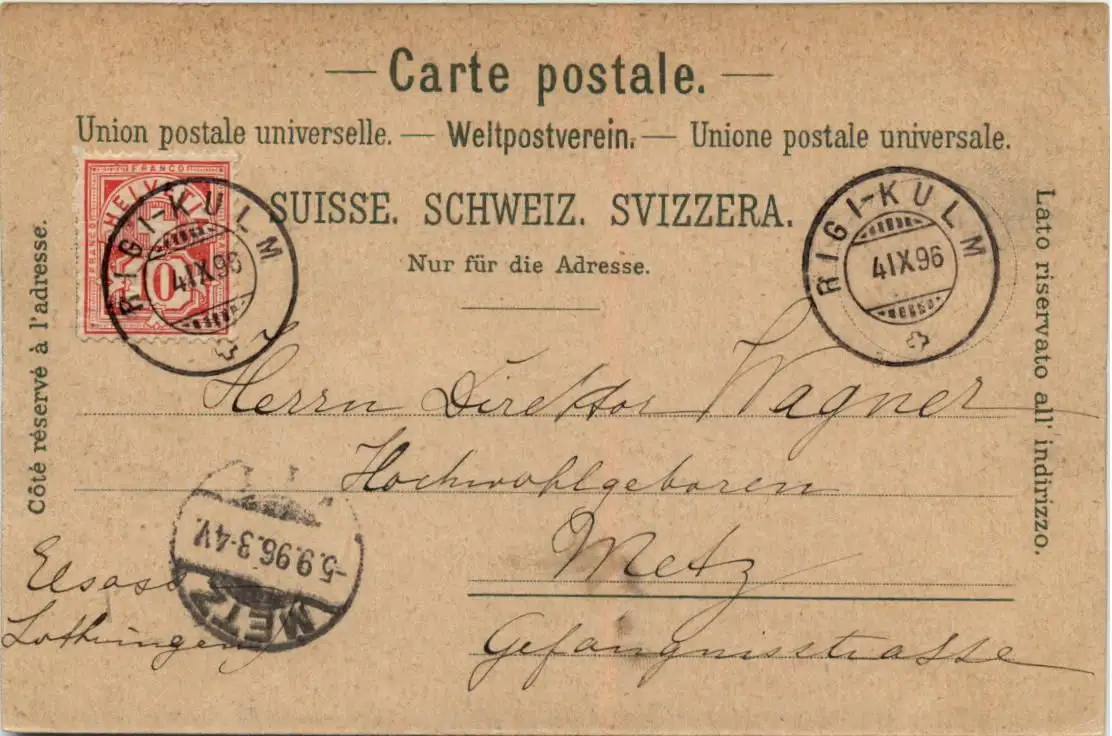 Carte postale.
Union postale universelle. — Weltpostverein. — Unione postale universale.
SUISSE. SCHWEIZ. SVIZZERA.
Nur für die Adresse.
Côté réservé à l'adresse.
Lato riservato all' indirizzo.
FRANCO
HELVETIA
10
RIGI-KULM
4IX96
RIGI-KULM
4IX96
Herrn Direktor Wagner
Hochwohlgeboren
Metz
Gefängnisstrasse
Elsass
Lothringen
METZ
5.9.96.3-4V.